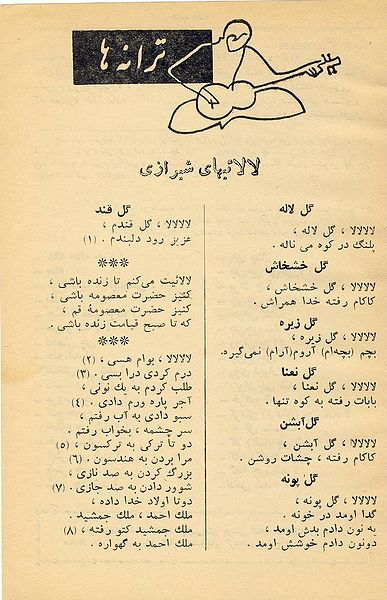 ترانه ها
لالائیهای شیرازی
گل لاله
لالالالا ، گل لاله ،
پلنگ در کوه می ناله .
گل خشخاش
لالالالا ، گل خشخاش ،
کاکام رفته خدا همراش .
گل زیره
لالالالا ، گل زیره ،
بچم (بچه‌ام) آروم(آرام) نمی‌گیره.
گل نعنا
لالالالا ، گل نعنا ،
بابات رفته به کوه تنها .
گل آبشن
لالالالا ، گل آبشن ،
کاکام رفته ، چشات روشن .
گل پونه
لالالالا ، گل پونه ،
گدا اومد در خونه .
یه نون دادم بدش اومد ،
دونون دادم خوشش اومد .
گل قند
لالالالا ، گل قندم ،
عزیز رود دلبندم . (۱)
***
لالائیت می‌کنم تا زنده باشی ،
کنیز حضرت معصومه باشی ،
کنیز حضرت معصومهٔ قم ،
که تا صبح قیامت زنده باشی .
***
لالالالا ، بوام هسی ، (۲)
درم کردی درا بسی . (۳)
طلب کردم به یك نونی ،
آجر پاره ورم دادی . (٤)
سبو دادی به آب رفتم ،
سر چشمه ، بخواب رفتم .
دو تا ترکی به ترکسون ، (۵)
مرا بردن به هندسون . (٦)
بزرگ کردن به صد نازی ،
شوور دادن به صد جازی . (۷)
دوتا اولاد خدا داده ،
ملك احمد ، ملك جمشید .
ملك جمشید کتو رفته ، (۸)
ملك احمد به گهواره .